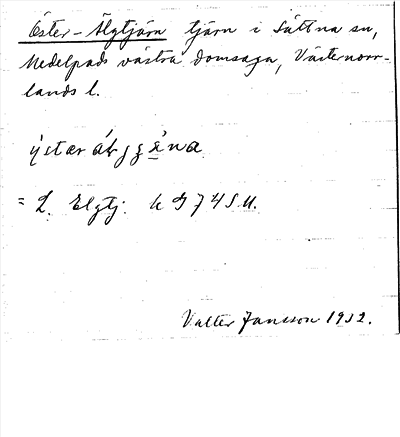 Öster-Älgtjärn tjärn i Sättna sn,
Medelpads västra domsaga, Västernorr-
lands l.
= L. Elgtj. k G 74 S.U.
Valter Jansson 1932.